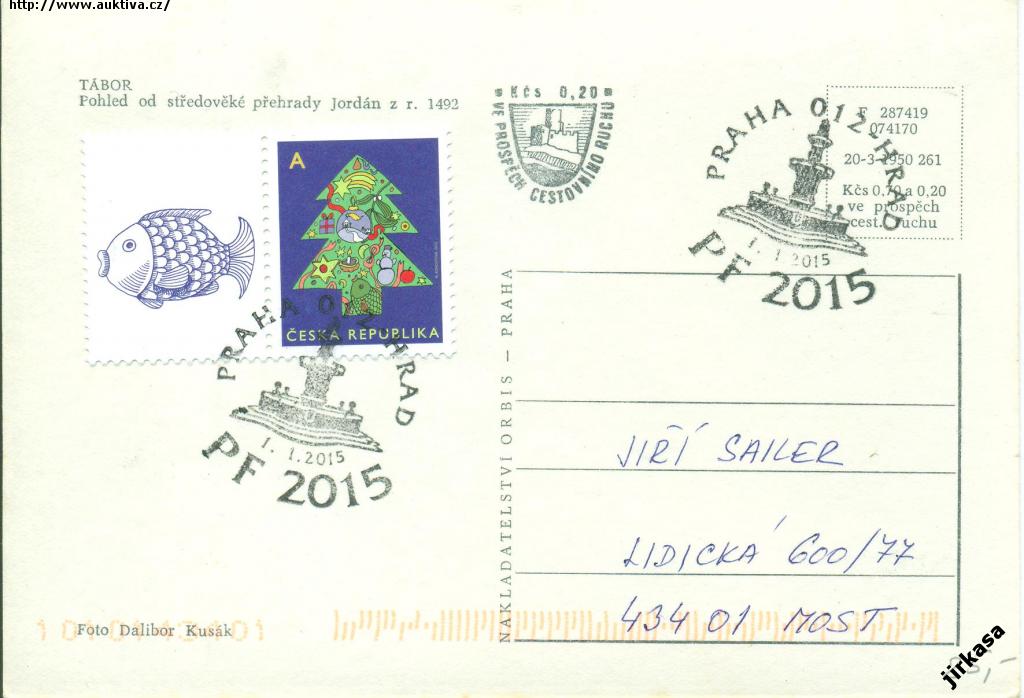 http://www.auktiva.cz/
TÁBOR
Pohled od středověké přehrady Jordán z r. 1492
Kčs 0,20
VE PROSPĚCH CESTOVNÍHO RUCHU
F 287419
074170
20-3-1950 261
Kčs 0,70 a 0,20
ve prospěch
cest. ruchu
PRAHA 012-HRAD
1. 1.2015
PF 2015
A
ČESKÁ REPUBLIKA
PRAHA 012-HRAD
1. 1.2015
PF 2015
NAKLADATELSTVÍ ORBIS — PRAHA
JIŘÍ SAILER
LIDICKÁ 600/77
434 01 MOST
Foto Dalibor Kusák
jirkasa